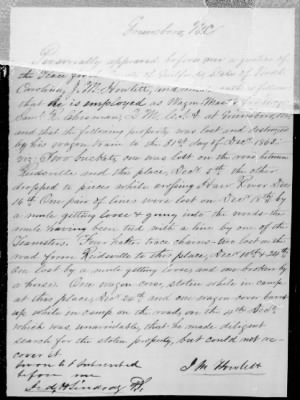 Greensboro, N.C.
Personally appeared before me a Justice of
the Peace from County of Guilford, State of North
Carolina, J. M. Howlett, and
that he is employed as Wagon Master
Saml. R. Chisman, Q.M. C.S.A. at Greensboro, N.C.
and that the following property was lost and destroyed
by his wagon train to the 31st day of Decr 1862.
viz: Two buckets, one was lost on the road between
Reidsville and this place, Decr 5th the other
dropped to pieces while crossing Haw River Decr
16th One pair of lines were lost on Decr by
a mule getting loose & going into the woods the
mule having been tied with a line by one of the
Teamsters. Four halter trace chains - two lost on the
road from Reidsville to this place, Decr 10th & 24th
one lost by a mule getting loose, and one broken by
a horse. One wagon cover, stolen while in camp
at this place, Decr 24th and one wagon cover burnt
up while in camp on the road, on the Decr
which was unavoidable, that he made deligent
search for the stolen property, but could not re-
cover it
Sworn to & subscribed
before me
J M Howlett
Jed H Lindsay J.P.